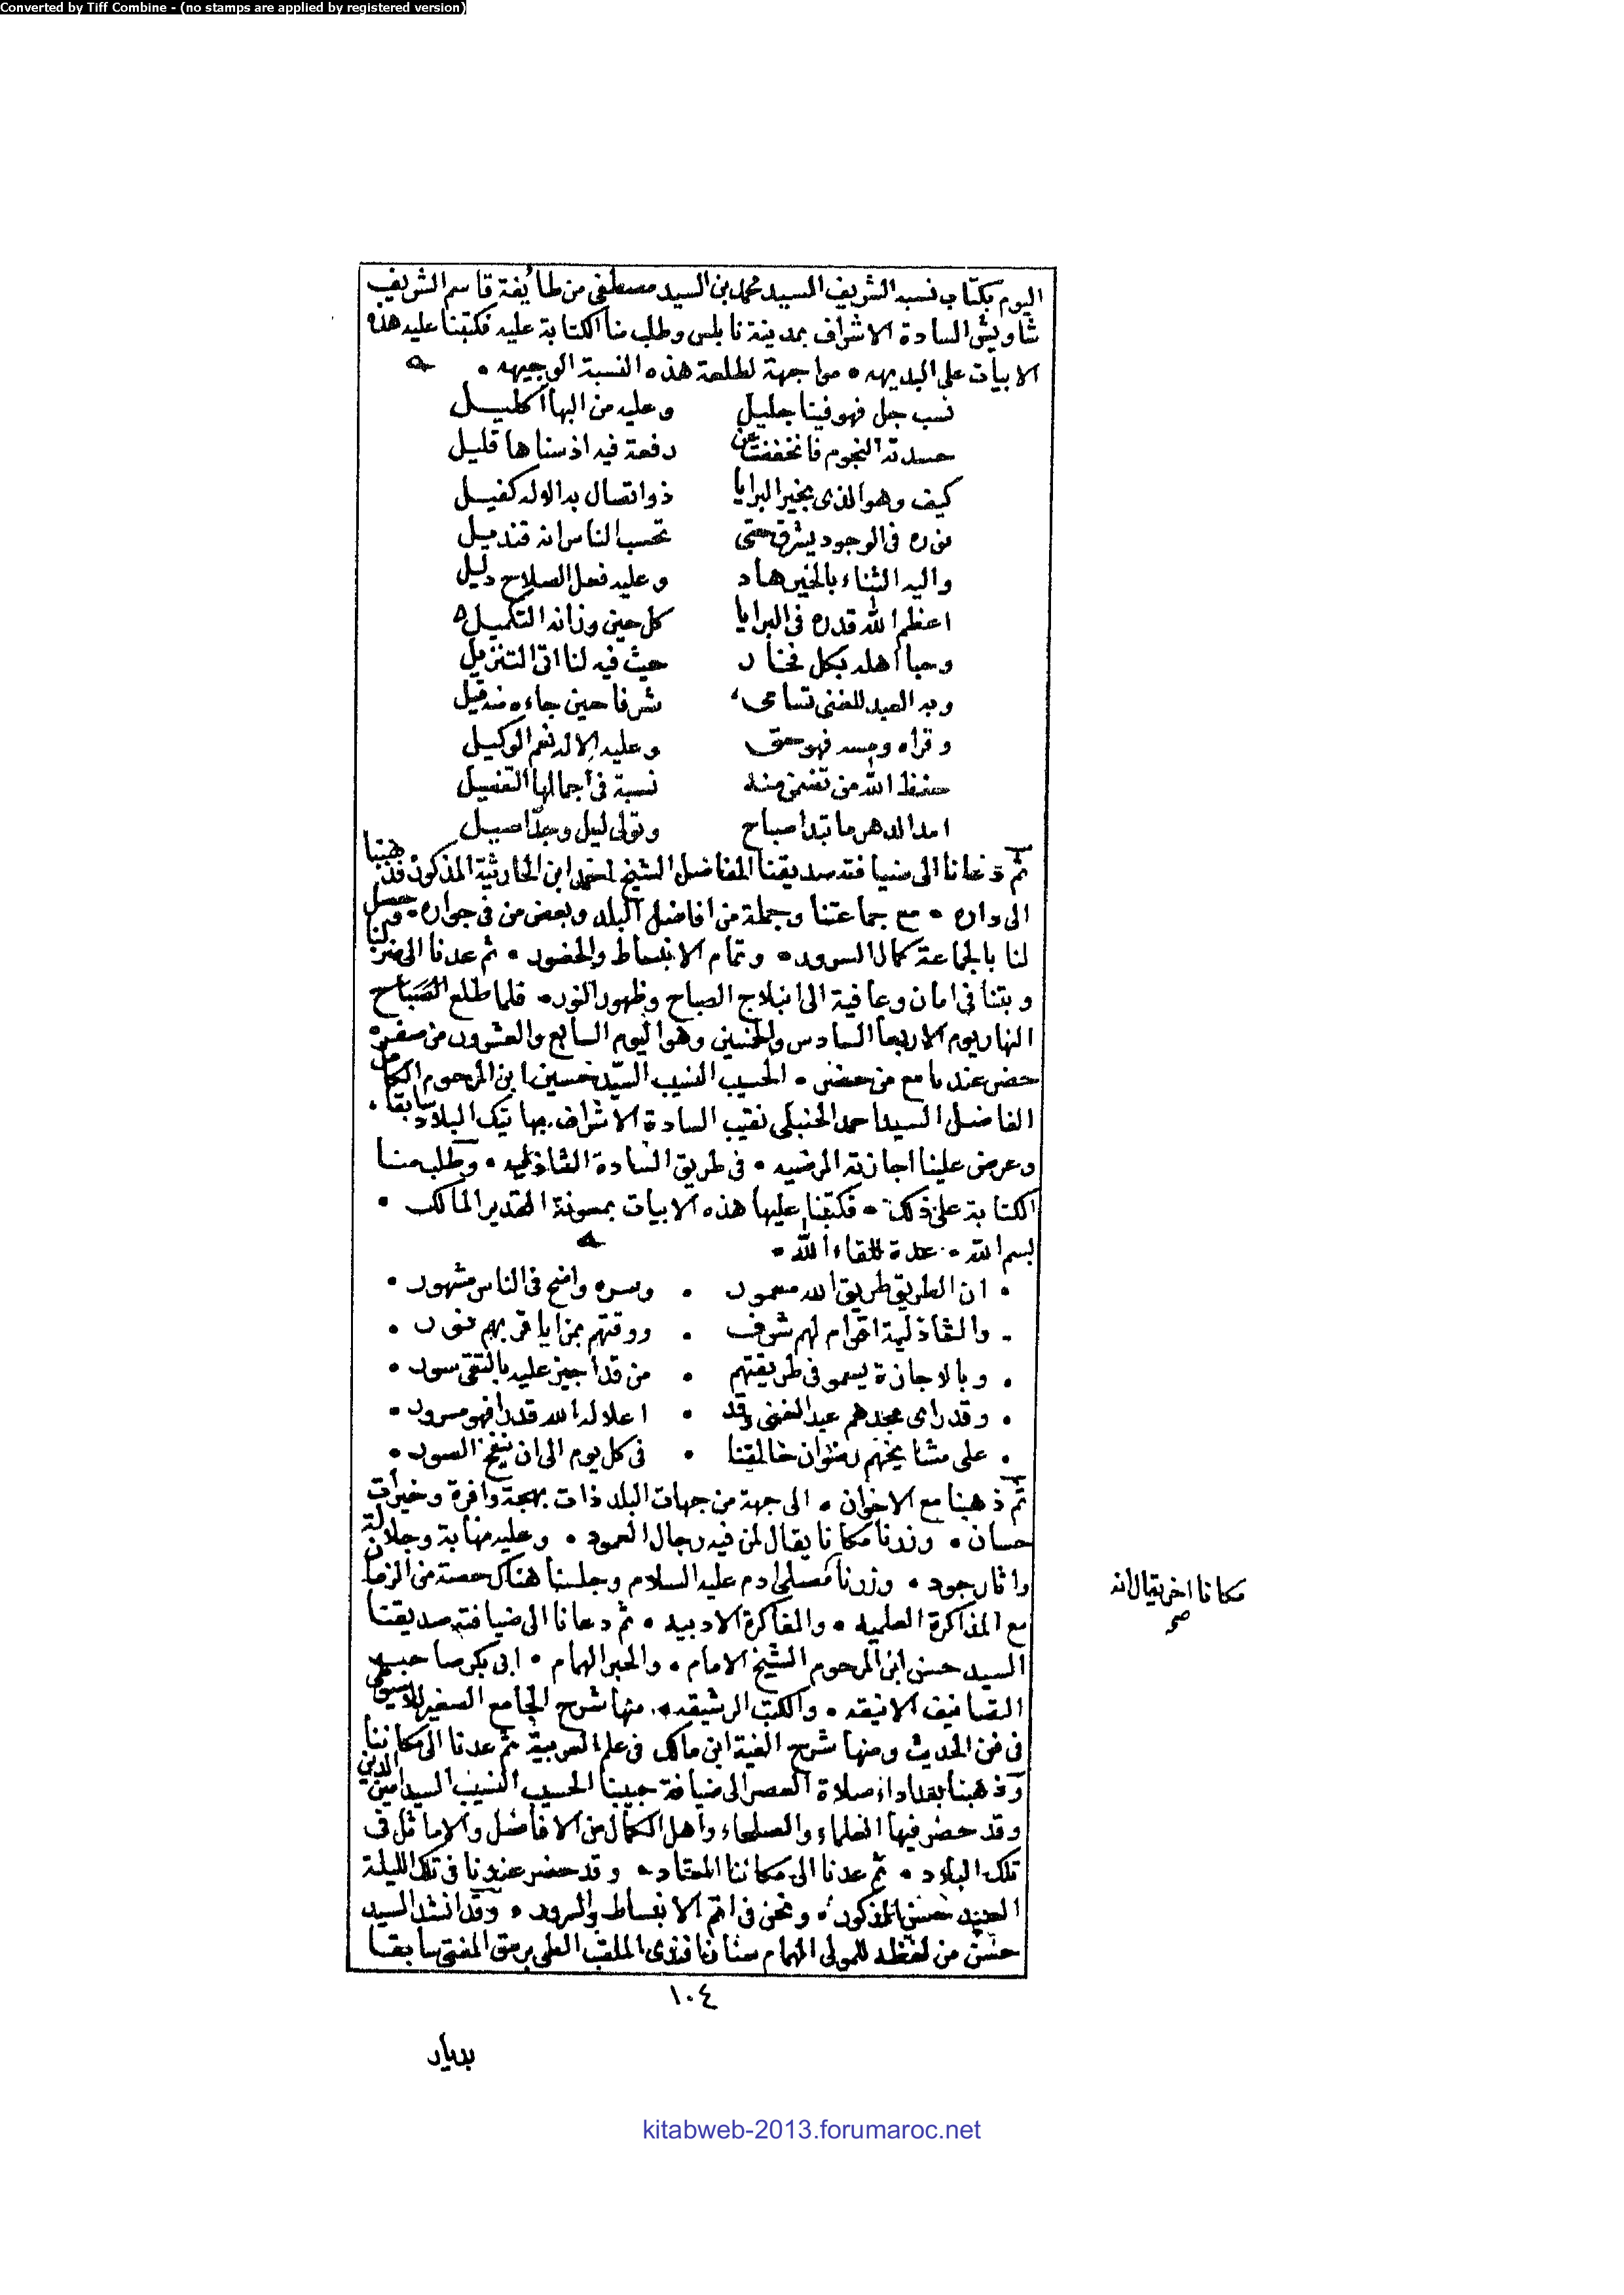 Converted by Tiff Combine - (no stamps are applied by registered version)
اليوم بكتاب نسبه الشريف السيد محمد بن السيد مصطفى من طائفة قاسم الشريف
شاويش السادة الاشراف بمدينة نابلس وطلب منا الكتابة عليه فكتبنا عليه هذه
الابيات على البديهه • مواجهة لطلعة هذه النسبة الوجيهه •
نسب جل فهو فينا جليل وعليه من البها اكليل
حسدته النجوم فانخفضت عن رفعة فيه اذ سناها قليل
كيف وهو الذى بخير البرايا ذو اتصال به الاله كفيل
نوره فى الوجود يشرق حتى تحسب الناس انه قنديل
واليه الثناء بالخير هاد وعليه فعل الصلاح دليل
اعظم الله قدره فى البرايا كل حين وزانه التكميل
وحبا اهله بكل فخار حيث فيه لنا اتى التنزيل
وبه العبد للغنى تسامى شرفا حين جاءه منه قيل
وقراه ومسه فهو حق وعليه الاله نعم الوكيل
حفظ الله من تضمن منه نسبة فى اجمالها التفصيل
امد الدهر ما تبدا صباح وتولى ليل وجدّ اصيل
ثم دعانا الى ضيافته صديقنا الفاضل الشيخ احمد ابن الحارثية المذكور فذهبنا
الى داره • مع جماعتنا وجملة من افاضل البلد وبعض من فى جواره • فحصل
لنا بالجماعة كمال السرور • وتمام الانبساط والحضور • ثم عدنا الى منزلنا
وبتنا فى امان وعافية الى انبلاج الصباح وظهور النور • فلما طلع الصباح
النهار يوم الاربعا السادس والخمسين وهو اليوم السابع والعشرون من صفر
حضر عندنا مع من حضر • الحسيب النسيب السيد حسين ابن المرحوم الكامل
الفاضل السيد احمد الحنبلى نقيب السادة الاشراف بهاتيك البلاد سابقا •
وعرض علينا اجازته المرضيه • فى طريق السادة الشاذليه • وطلب منا
الكتابة على ذلك • فكتبنا عليها هذه الابيات بمعونة القدير المالك •
بسم الله • عدة للقاء الله •
• ان الطريق طريق الله معمور • وسره واضح فى الناس مشهور •
• والشاذلية اقوام لهم شرف • ووقتهم بمزايا قربهم نور •
• وبالاجازة يسمو فى طريقتهم • من قد اجيز عليه بالتقى سور •
• وقد راى مجدهم عبد الغنى وقد • اعلا له الله قدرا فهو مسرور •
• على مشايخهم رضوان خالقنا • فى كل يوم الى ان ينفخ الصور •
ثم ذهبنا مع الاخوان • الى جهة من جهات البلد ذات بهجة وافرة وخيرات
حسان • وزرنا مكانا يقال لمن فيه رجال العمود • وعليه مهابة وجلالة
واثار جود • وزرنا مصلى ادم عليه السلام وجلسنا هناك حصة من الزمان
مكانا اخر يقال انه
صح
مع المذاكرة العلميه • والمفاكرة الادبيه • ثم دعانا الى ضيافته صديقنا
السيد حسن ابن المرحوم الشيخ الامام • والحبر الهمام • ابى بكر صاحب
التصانيف الانيقه • والكتب الرشيقه • منها شرح الجامع الصغير للاسيوطى
فى فن الحديث ومنها شرح الفية ابن مالك فى علم العربية ثم عدنا الى مكاننا
وذهبنا بعد اداء صلاة العصر الى ضيافة حبيبنا الحسيب النسيب السيد امين الدين
وقد حضر فيها العلماء والصلحاء واهل الكمال من الافاضل والاماثل فى
تلك البلاد • ثم عدنا الى مكاننا المعتاد • وقد حضر عندنا فى تلك الليلة
السيد حسن المذكور • ونحن فى اتم الانبساط والسرور • وقد انشد السيد
حسن من لفظه للمولى الهمام سنان افندى الملقب العلمى المفتى سابقا
١٠٤
بديار
kitabweb-2013.forumaroc.net